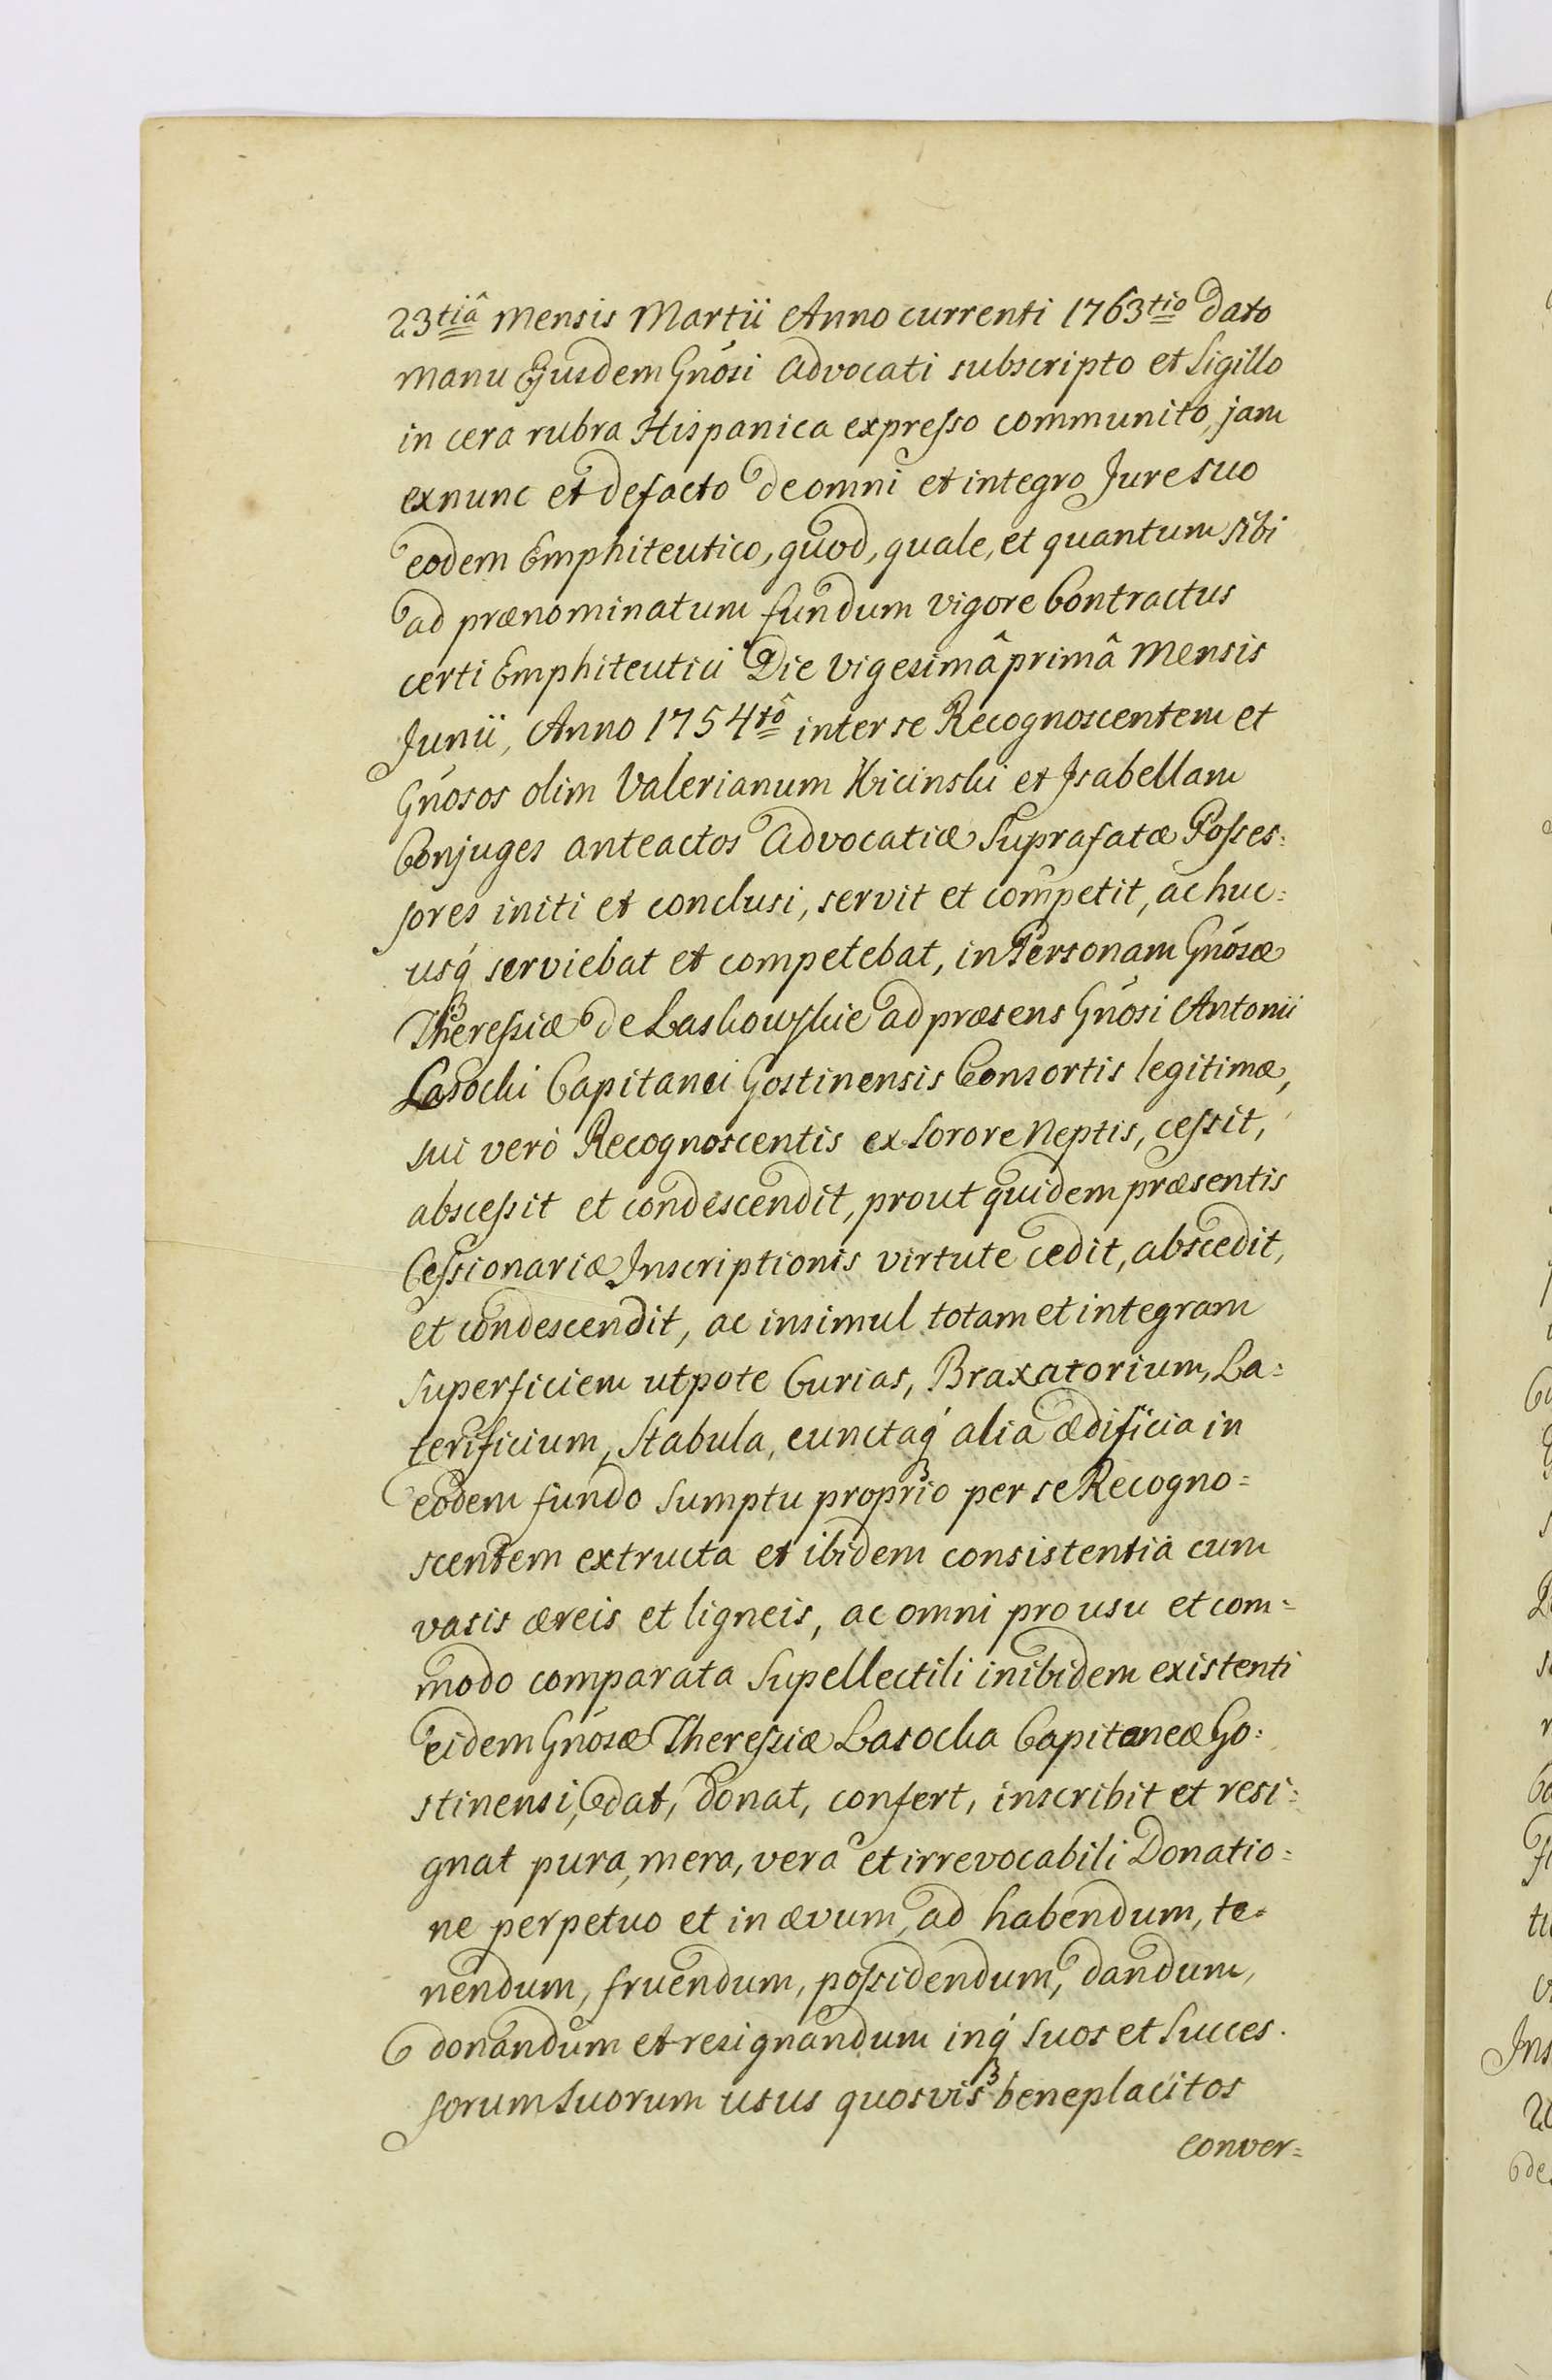 23tiâ Mensis Martii Anno currenti 1763tio dato
manu Ejusdem Gnosi Advocati subscripto et Sigillo
in cera rubra Hispanica expresso communito, jam
exnunc et defacto de omni et integro Jure suo
eodem Emphiteutico, quod, quale, et quantum sibi
ad prænominatum fundum vigore Contractus
certi Emphiteutici Die vigesimâ primâ Mensis
Junii, Anno 1754tô inter se Recognoscentem et
Gnosos olim Valerianum Kicinski et Isabellam
Conjuges anteactos Advocatiæ Suprafatæ Posses:
sores initi et conclusi, servit et competit, ac huc:
usq́ serviebat et competebat, in Personam Gnosæ
Theressiæ de Laskowskie ad præsens Gnosi Antonii
Lasocki Capitanei Gostinensis Consortis legitimæ,
sui verò Recognoscentis ex Sorore Neptis, cessit,
abscessit et condescendit, prout quidem præsentis
Cessionariæ Inscriptionis virtute cedit, abscedit,
et condescendit, ac insimul totam et integram
superficiem utpote Curias, Braxatorium, La:
terificium, Stabula, cunctaq́ alia ædificia in
eodem fundo Sumptu proprio per se Recogno:
scentem extructa et ibidem consistentia cum
vasis æreis et ligneis, ac omni pro usu et com:
modo comparata Supellectili inibidem existenti
eidem Gnosæ Theressiæ Lasocka Capitaneæ Go:
stinensi, dat, donat, confert, inscribit et resi:
gnat pura, mera, vera et irrevocabili Donatio:
ne perpetuo et in ævum, ad habendum, te:
nendum, fruendum, possidendum, dandum,
donandum et resignandum inq́ suos et Succes.
sorum Suorum usus quosvis beneplacitos
conver: